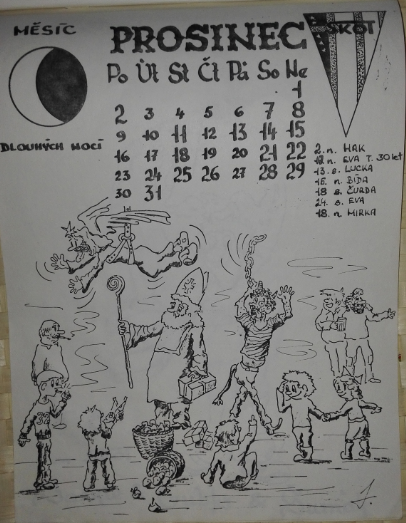 MĚSÍC
PROSINEC
SKOT
Po Út St Čt Pá So Ne
1
2 3 4 5 6 7 8
9 10 11 12 13 14 15
16 17 18 19 20 21 22
23 24 25 26 27 28 29
30 31
DLOUHÝCH NOCÍ
2. n. HAK
12. n. EVA T. 30 let
13. s. LUCKA
15. n. BÍĎA
18 s. ČURDA
24. s. EVA
18. n. MIRKA